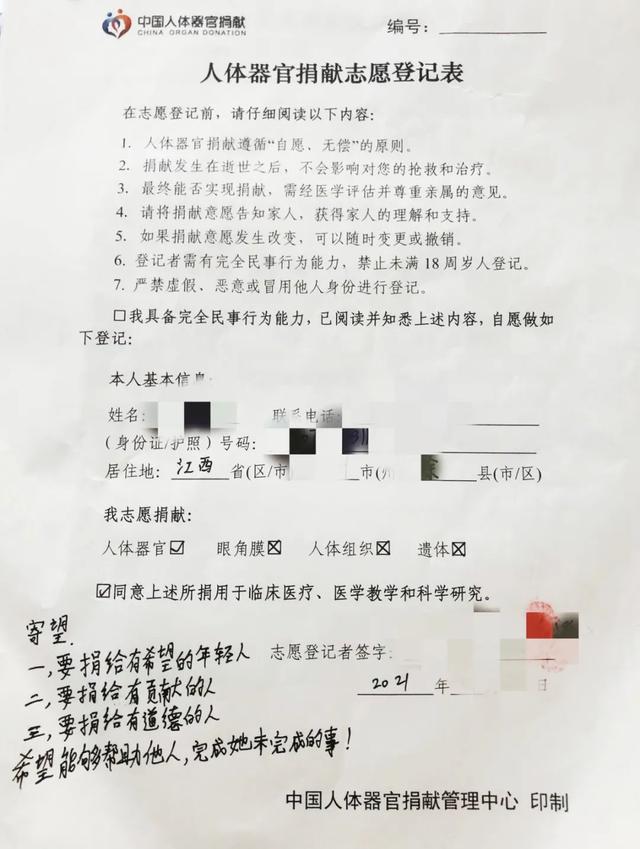 中国人体器官捐献
CHINA ORGAN DONATION
编号：
人体器官捐献志愿登记表
在志愿登记前，请仔细阅读以下内容：
1. 人体器官捐献遵循“自愿、无偿”的原则。
2. 捐献发生在逝世之后，不会影响对您的抢救和治疗。
3. 最终能否实现捐献，需经医学评估并尊重亲属的意见。
4. 请将捐献意愿告知家人，获得家人的理解和支持。
5. 如果捐献意愿发生改变，可以随时变更或撤销。
6. 登记者需有完全民事行为能力，禁止未满 18 周岁人登记。
7. 严禁虚假、恶意或冒用他人身份进行登记。
☐我具备完全民事行为能力，已阅读并知悉上述内容，自愿做如
下登记：
本人基本信息：
姓名： 联系电话：
（身份证/护照）号码：
居住地：江西省(区/市 市(州 县(市/区)
我志愿捐献：
人体器官☑ 眼角膜☒ 人体组织☒ 遗体☒
☑同意上述所捐用于临床医疗、医学教学和科学研究。
志愿登记者签字：
2021 年 日
寄望：
一，要捐给有希望的年轻人
二，要捐给有贡献的人
三，要捐给有道德的人
希望能够帮助他人，完成她未完成的事！
中国人体器官捐献管理中心 印制